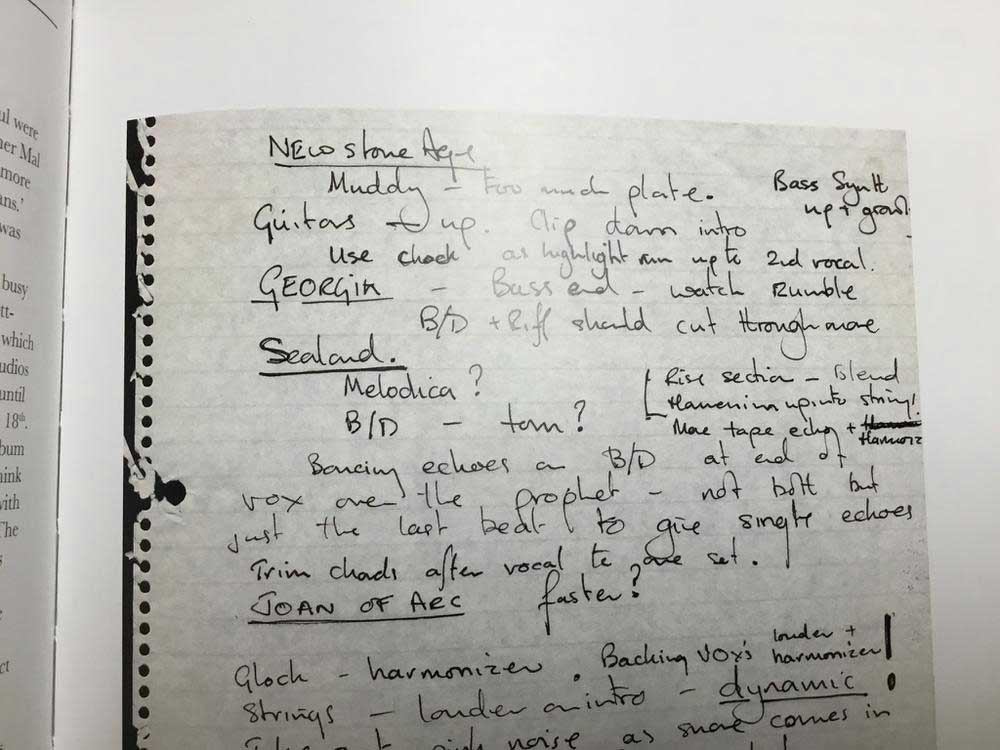 ul were
ner Mal
more
ans.'
was
busy
tt-
which
udios
until
18th.
bum
hink
with
The
ct
NEW Stone Age
Muddy - too much plate.
Bass Synth
up + growl
Guitars up. Clip down into
Use as highlight run up to 2nd vocal.
GEORGIA - Bass end - watch Rumble
B/D + Riff should cut through more
Sealand.
Melodica?
B/D - tom?
Rise section - Blend
up into strings!
More tape echo +
Bouncing echoes on B/D at end of
vox over the prophet - not both but
just the last beat to give single echoes
Trim after vocal set.
JOAN OF ARC faster?
Glock - harmonizer. Backing VOX's louder + harmonizer!
Strings - louder on intro - dynamic!
noise as snare comes in